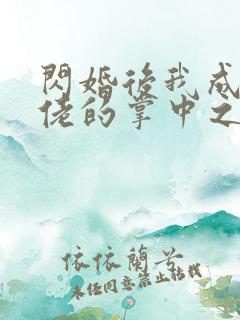 閃婚後我成
佬的掌中之
依依蘭兮
未經同意禁止轉載